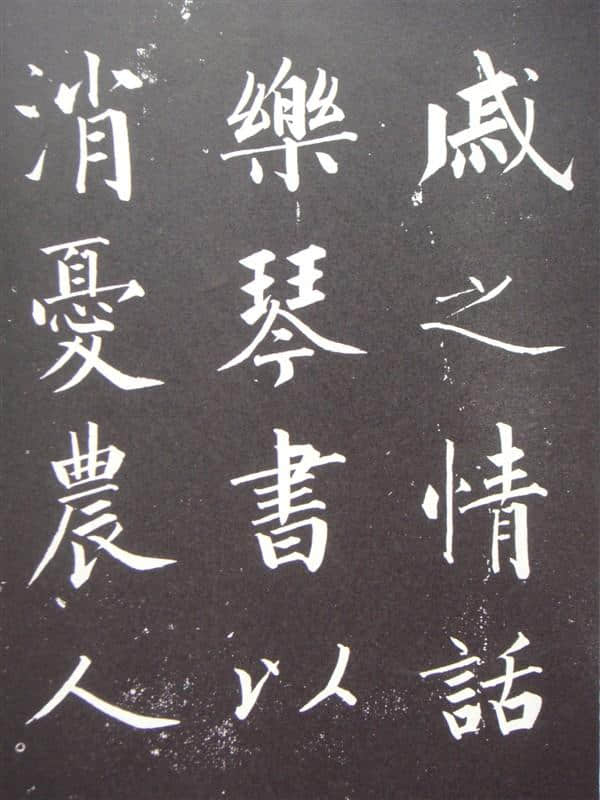 戚之情話
樂琴書以
消憂農人